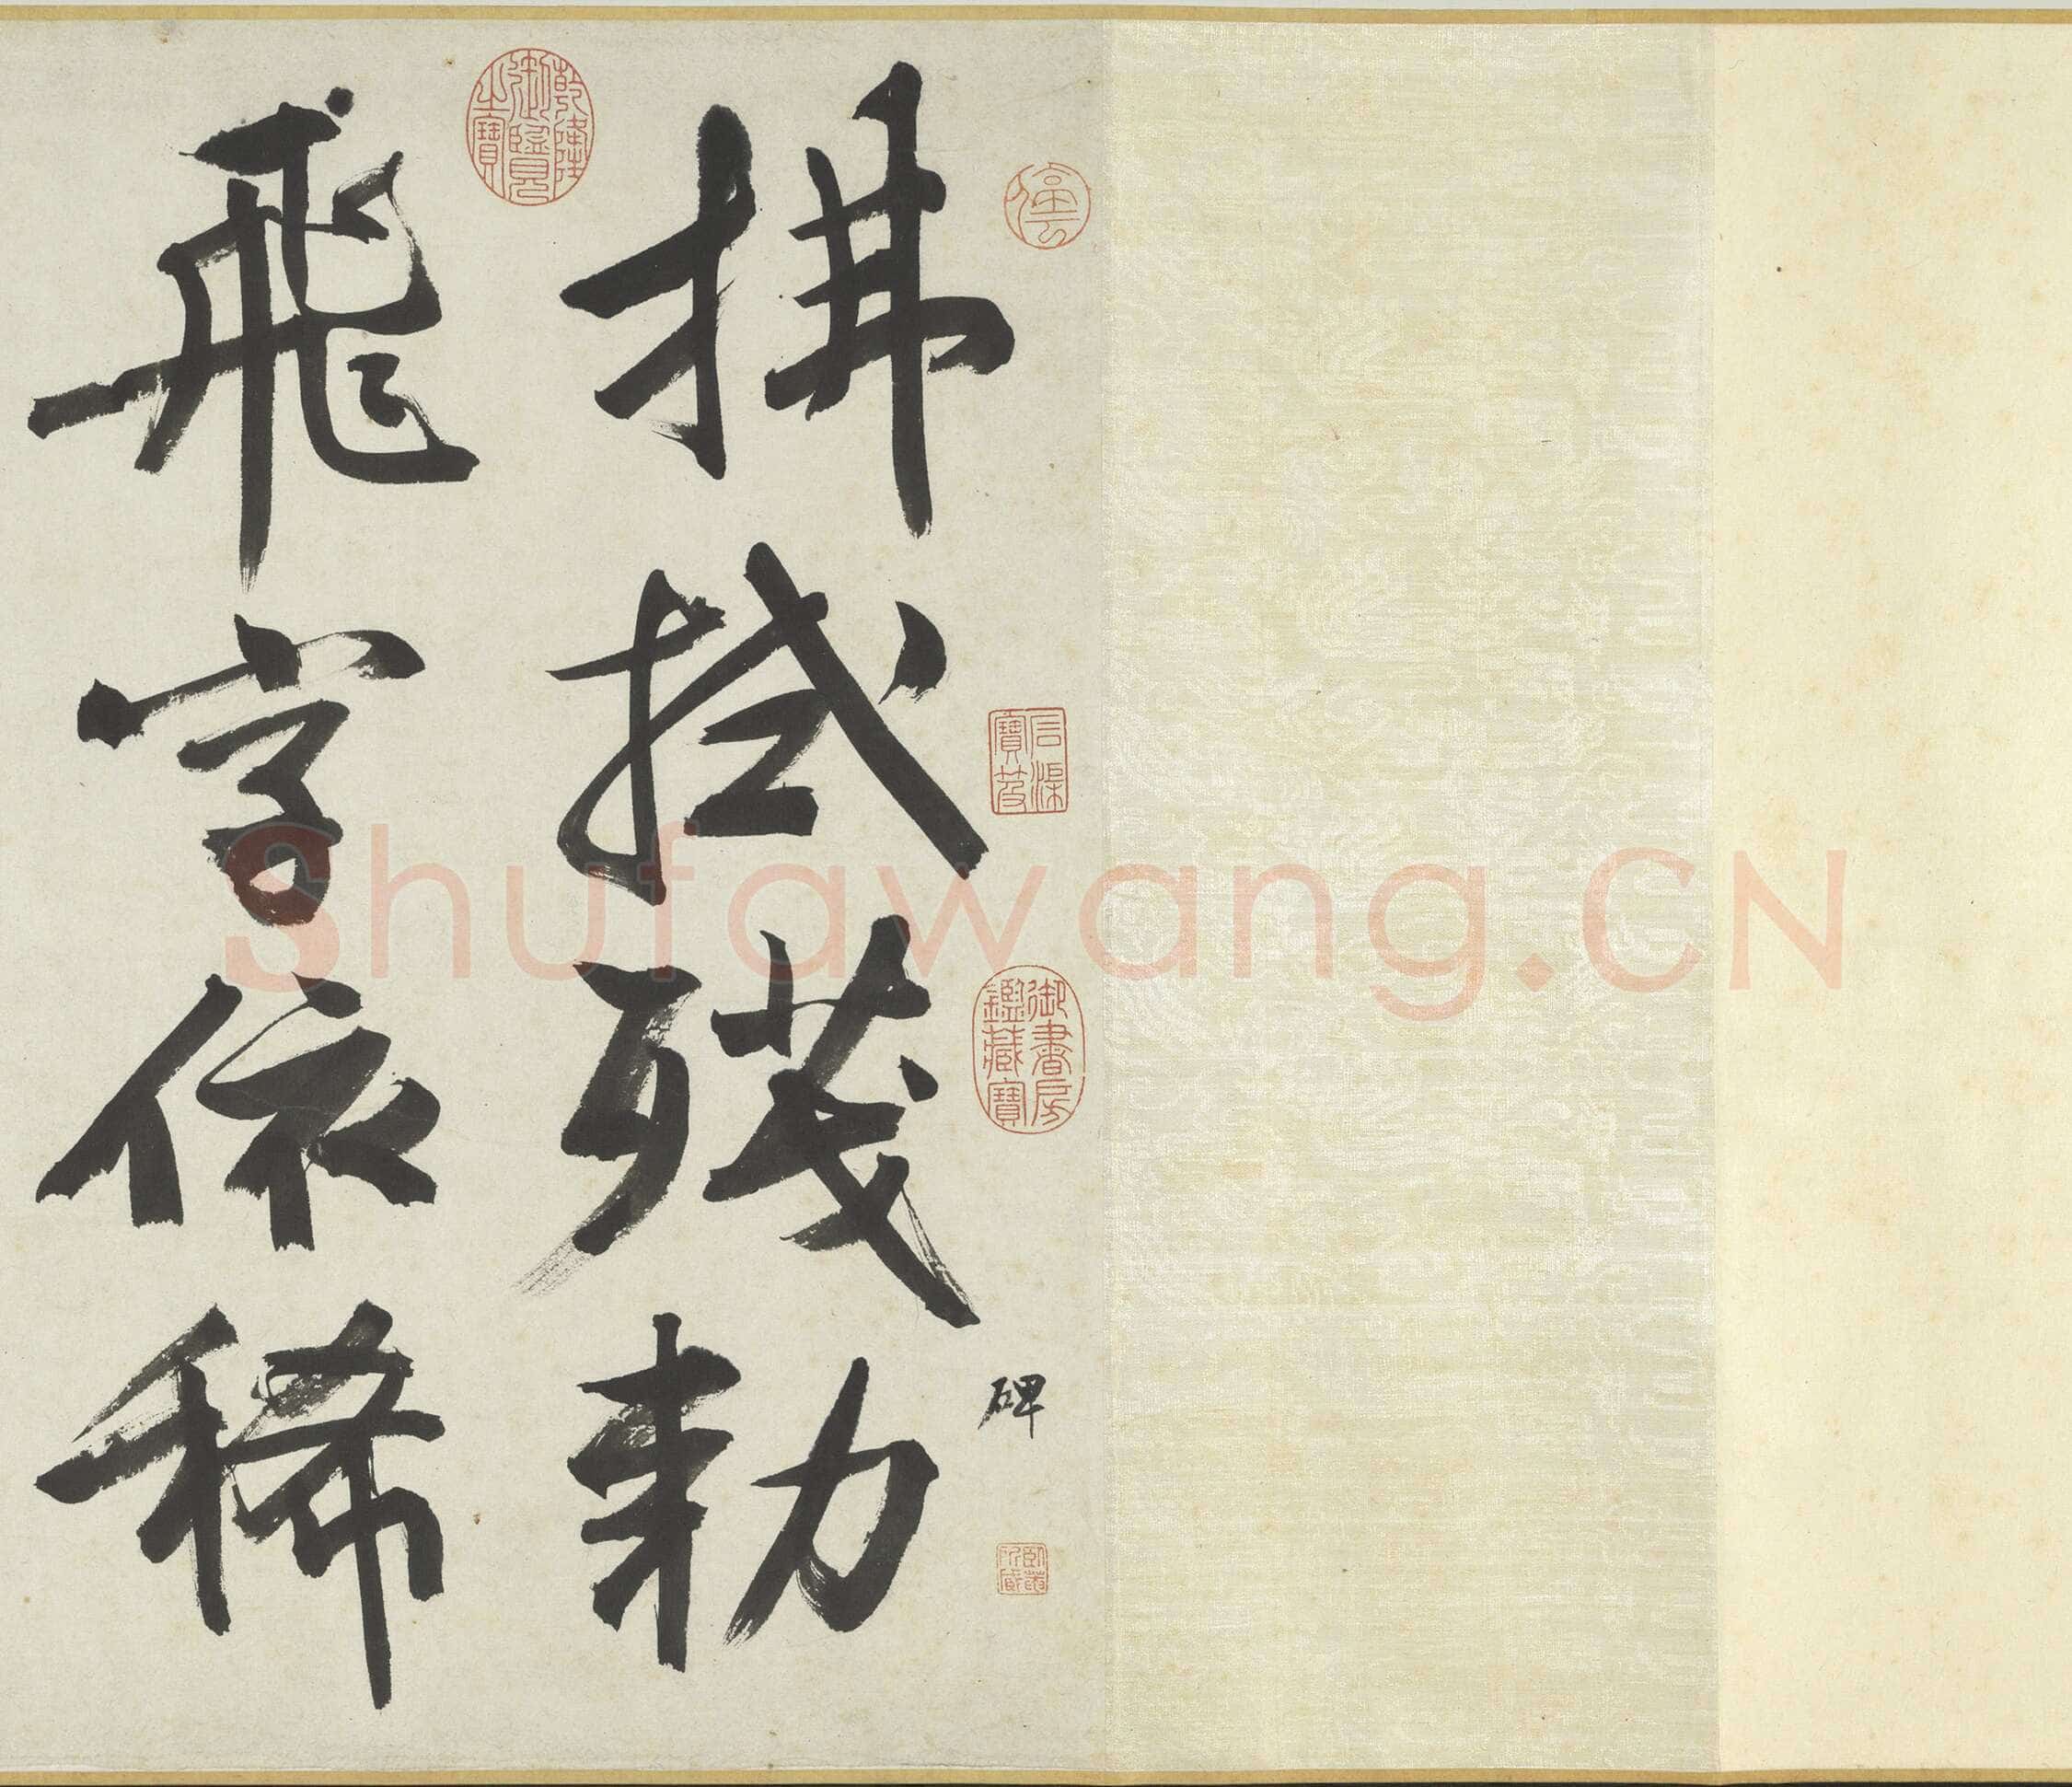 石渠寶笈
御書房鑑藏寶
碑
臥菴所藏
拂拭殘勅
乾隆御覽之寶
飛字依稀
Shufawang.CN